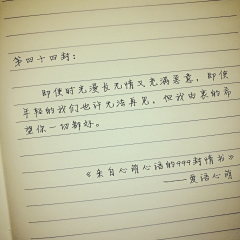 第四十四封:
即使时光漫长无情又充满恶意,即使
年轻的我们也许无法再见,但我由衷的希
望你一切都好。
《来自心萌心语的999封情书》
——爱语心萌